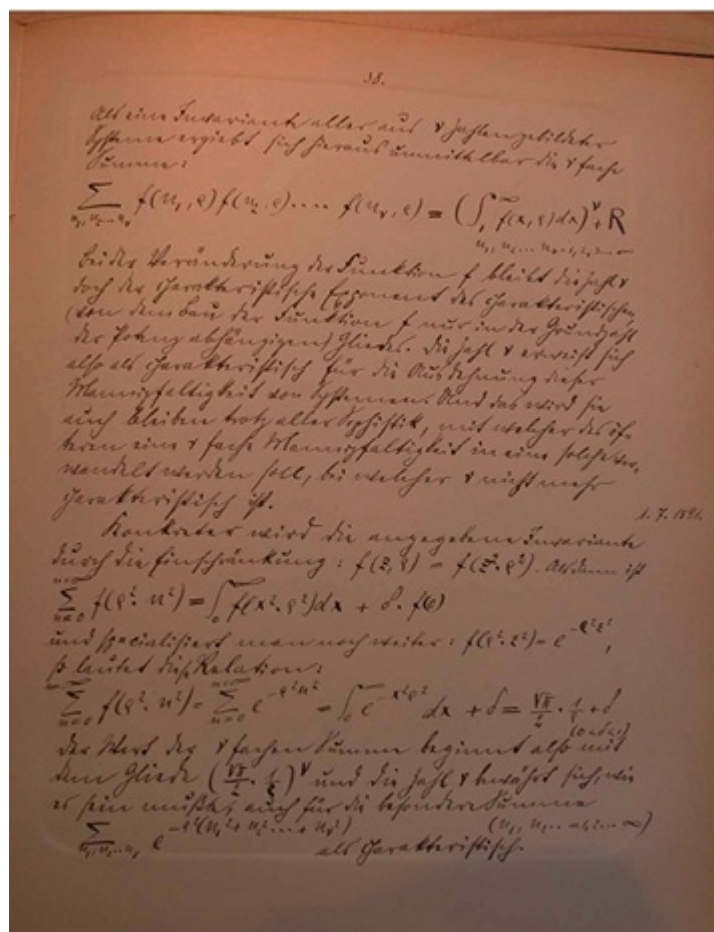 38.
Als eine Invariante aller aus ν Zahlen gebildeter
Systeme ergiebt sich hieraus unmittelbar die ν fache
Summe:
∑ n₁, n₂...nᵥ f(n₁, ϱ) f(n₂, ϱ).... f(nᵥ, ϱ) = (∫₁^∞ f(x, ϱ) dx)^ν + R
Bei der Veränderung der Funktion f bleibt die Zahl ν
doch der charakteristische Exponent des charakteristischen,
(von dem Bau der Funktion f nur in der Grundzahl
der Potenz abhängigen) Gliedes. Die Zahl ν erweist sich
also als charakteristisch für die Ausdehnung dieser
Mannigfaltigkeit von Systemen. Und das wird sie
auch bleiben trotz aller Sophistik, mit welcher des öf-
teren eine ν fache Mannigfaltigkeit in eine solche ver-
wandelt werden soll, bei welcher ν nicht mehr
charakteristisch ist.
1. 7. 1891.
Konkreter wird die angegebene Invariante
durch die Einschränkung: f(z, ϱ) = f(z²·ϱ²). Alsdann ist
∑ n=0 n=∞ f(ϱ²·n²) = ∫₀^∞ f(x²·ϱ²) dx + δ·f(0)
und specialisiert man noch weiter: f(ϱ²·z²) = e^{-ϱ²z²},
so lautet diese Relation:
∑ n=0 n=∞ f(ϱ²·n²) = ∑ n=0 n=∞ e^{-ϱ²n²} = ∫₀^∞ e^{-x²ϱ²} dx + δ = √π/2 · 1/ϱ + δ
(0<δ<1)
Der Wert der ν fachen Summe beginnt also mit
dem Gliede (√π/2 · 1/ϱ)^ν und die Zahl ν bewährt sich, wie
es sein mußte, auch für die besondere Summe
∑ n₁, n₂...nᵥ e^{-ϱ²(n₁²+n₂²...+nᵥ²)} (n₁, n₂... = 1, 2... ∞)
als charakteristisch.